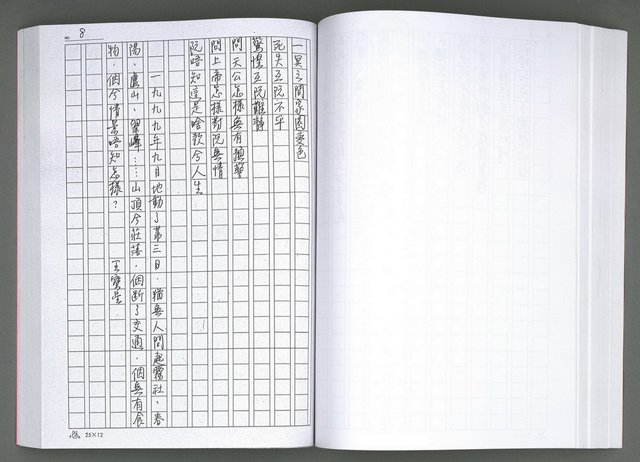 一冥之間家園變色
死失互阮不平
驚惶互阮難靜
問天公怎樣無有預警
問上帝怎樣對阮無情
阮唔知這是啥款今人生
一九九九年九月地動了第三日，猶無人問起霧社、春
陽、廬山、翠巒……山頂今莊落，個斷了交通，個無有食
物，個今情景唔知怎樣？
王寶星
No. 8
25×12